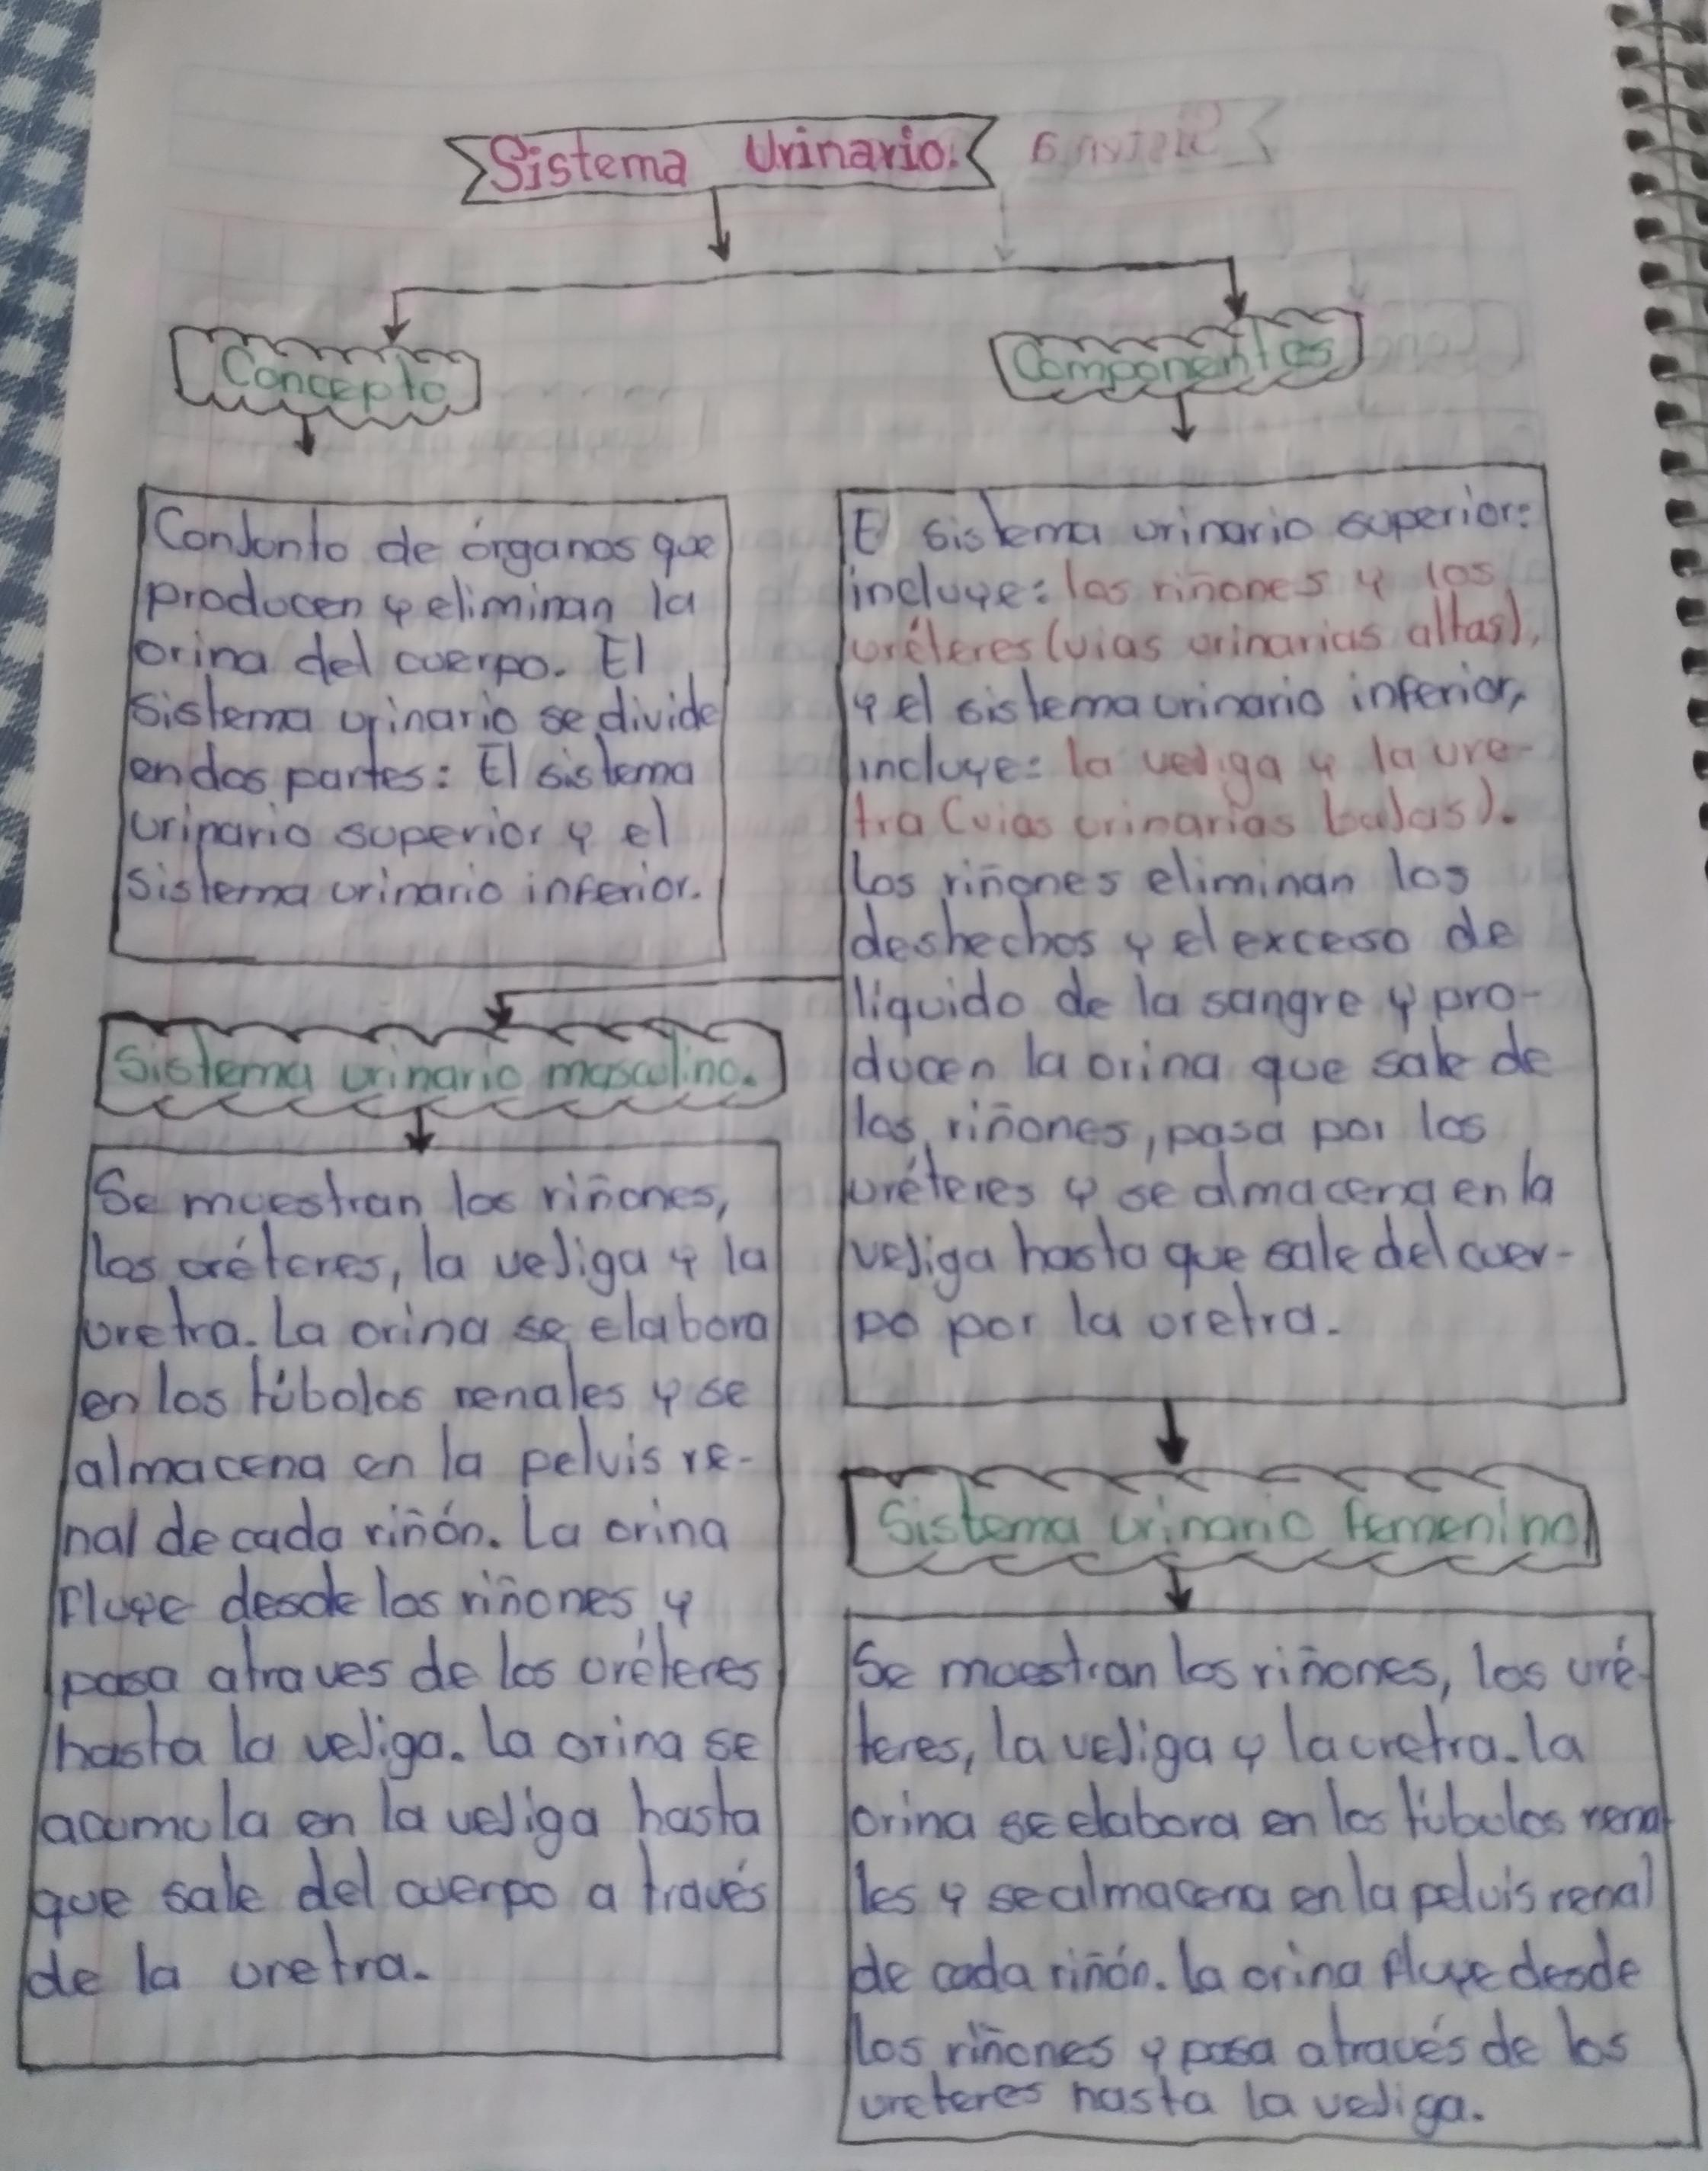 Sistema Urinario.
Concepto
Conjunto de órganos que
producen y eliminan la
orina del cuerpo. El
sistema urinario se divide
en dos partes: El sistema
urinario superior y el
sistema urinario inferior.
Componentes
El sistema urinario superior:
incluye: los riñones y los
uréteres (vias urinarias altas),
y el sistema urinario inferior,
incluye: la vejiga y la ure-
tra (vias urinarias bajas).
Los riñones eliminan los
deshechos y el exceso de
liquido de la sangre y pro-
ducen la orina que sale de
los riñones, pasa por los
uréteres y se almacena en la
vejiga hasta que sale del cuer-
po por la uretra.
Sistema urinario masculino.
Se muestran los riñones,
los uréteres, la vejiga y la
uretra. La orina se elabora
en los túbulos renales y se
almacena en la pelvis re-
nal de cada riñón. La orina
fluye desde los riñones y
pasa atraves de los uréteres
hasta la vejiga. La orina se
acumula en la vejiga hasta
que sale del cuerpo a través
de la uretra.
Sistema urinario femenino
Se muestran los riñones, los uré-
teres, la vejiga y la uretra. La
orina se elabora en los túbulos rena
les y se almacena en la pelvis renal
de cada riñón. La orina fluye desde
los riñones y pasa através de los
ureteres hasta la vejiga.